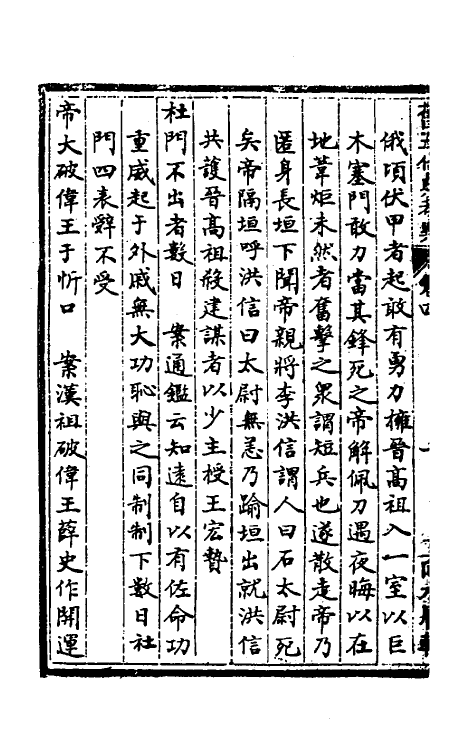 舊五代史考異 卷四
俄頃伏甲者起敢有勇力擁晉高祖入一室以巨
木塞門敢力當其鋒死之帝解佩刀遇夜晦以在
地葦炬未然者奮擊之衆謂短兵也遂散走帝乃
匿身長垣下聞帝親將李洪信謂人曰石太尉死
矣帝隔垣呼洪信曰太尉無恙乃踰垣出就洪信
共護晉高祖殺建謀者以少主授王宏贄
杜門不出者數日 案通鑑云知遠自以有佐命功
重威起于外戚無大功恥與之同制制下數日杜
門四表辭不受
帝大破偉王于忻口 案漢祖破偉王薛史作開運